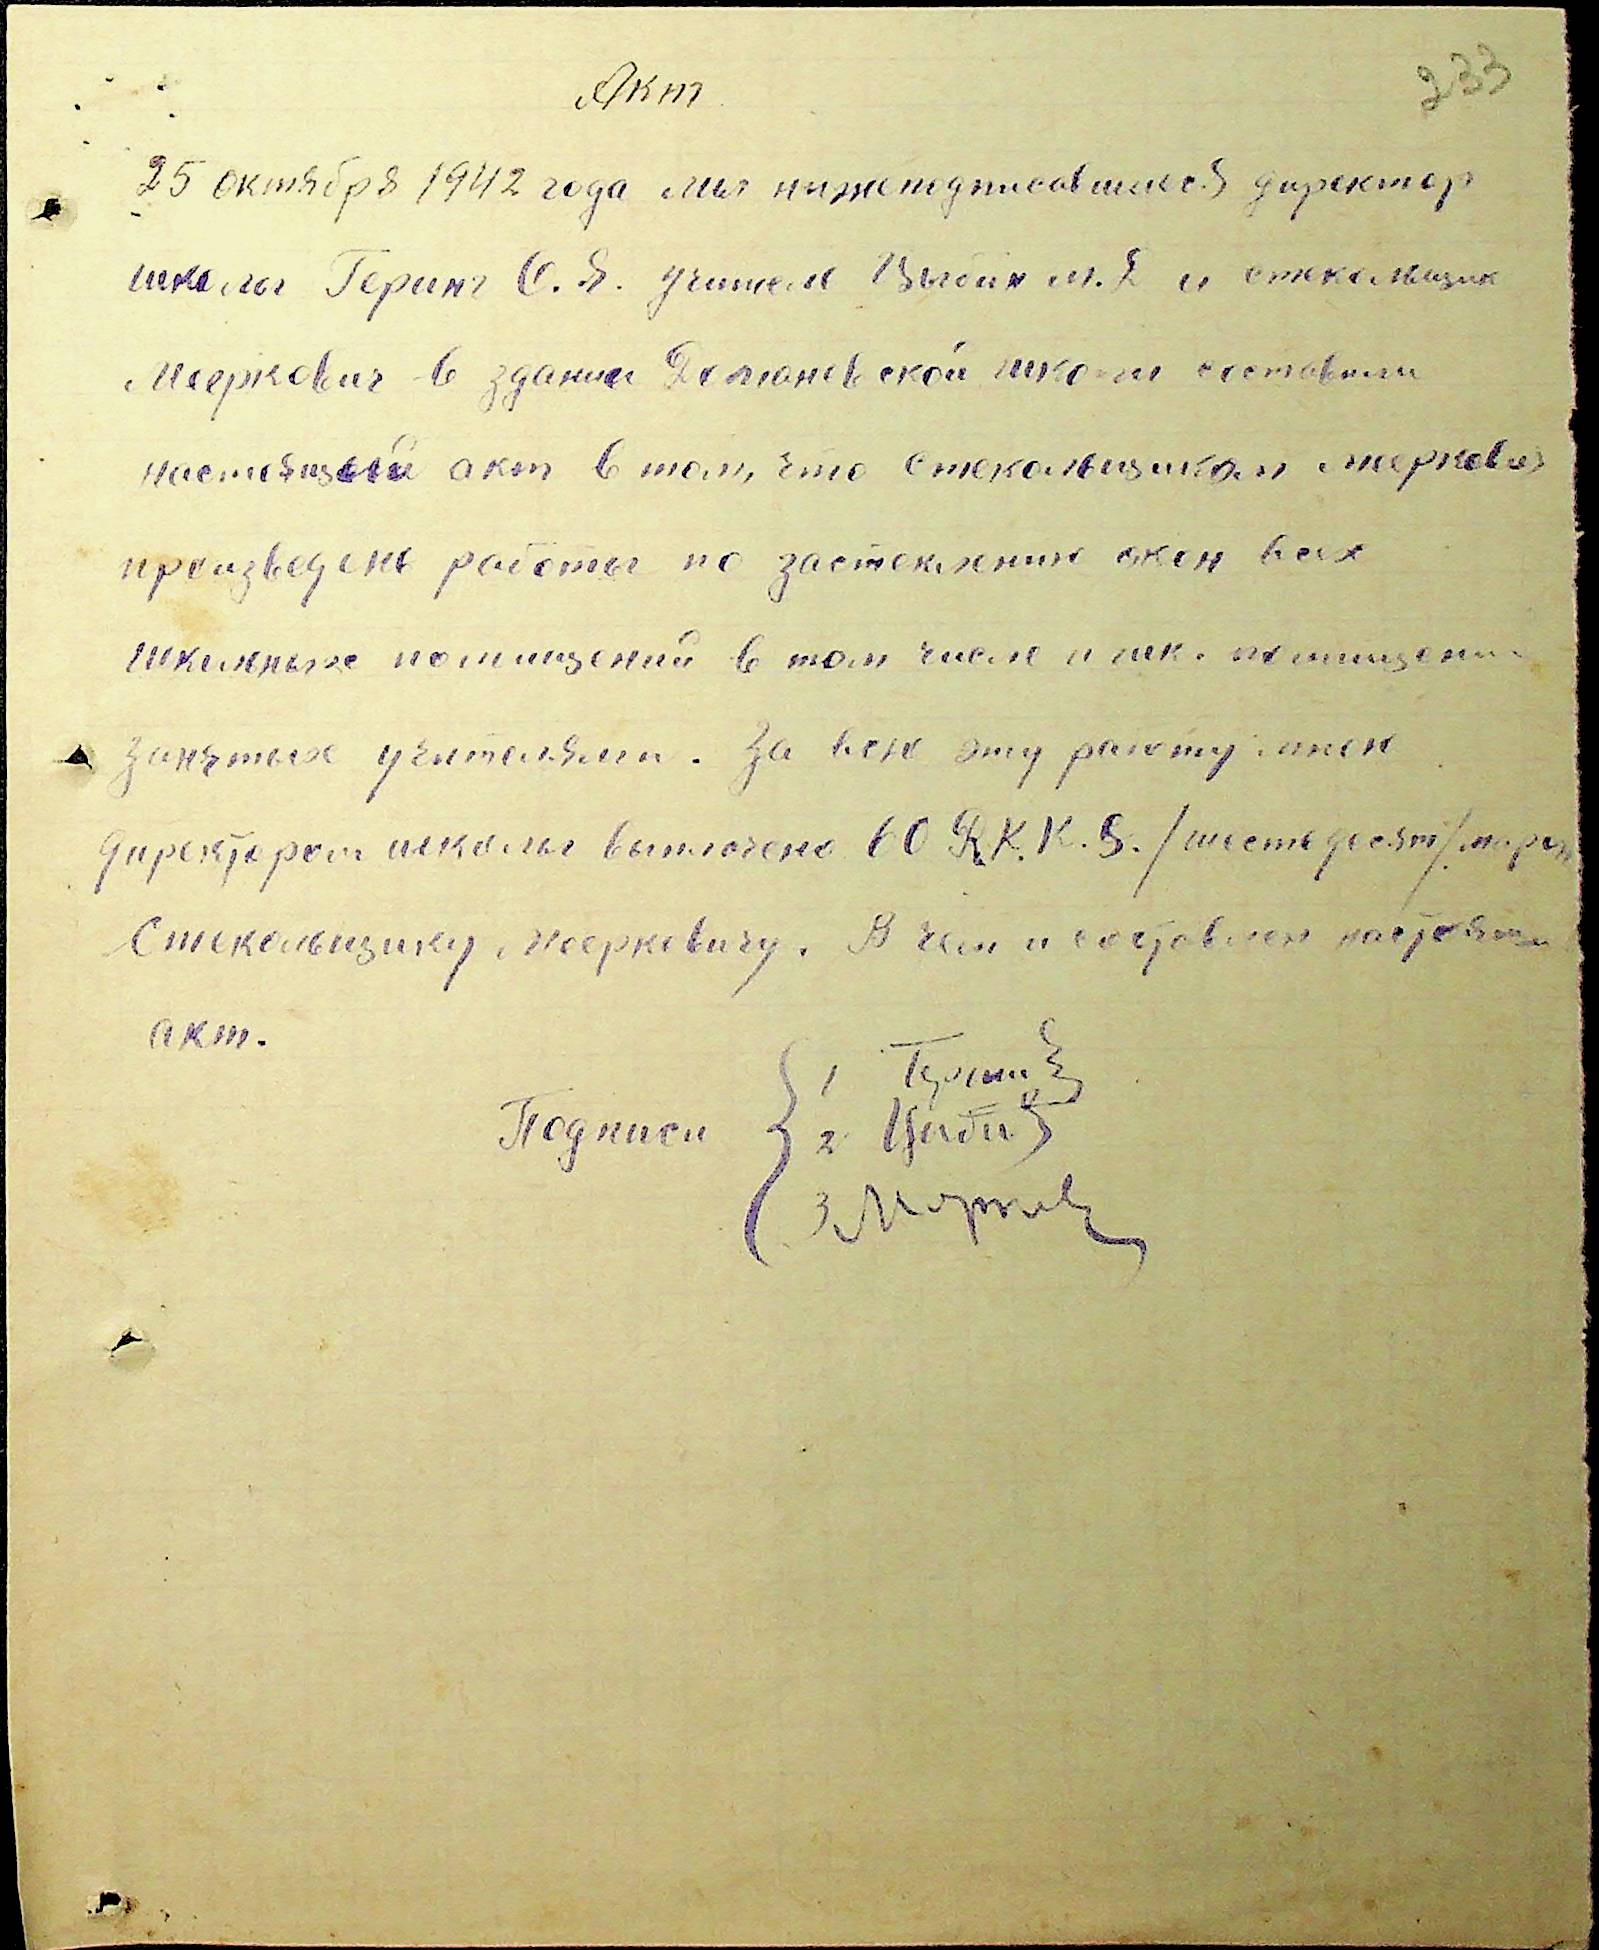 Акт
233
25 октября 1942 года мы нижеподписавшиеся директор
школы Геринг О. Я. учителя Цыбин М. Д и стекольщик
Мееркович в здании Домановской школы составили
настоящий акт в том, что стекольщиком Меркович
произведень работы по застеклению окон всех
школьных помищений в том числе и шк. помищений
занятых учителями. За всю эту работу мною
директором школы выплочено 60 R.K.K.S. /шестьдесят/ марок
Стекольщику Меерковичу. В чем и составлен настоящий
акт.
Подписи
1 Геринг
2 Цыбин
3 Меркович